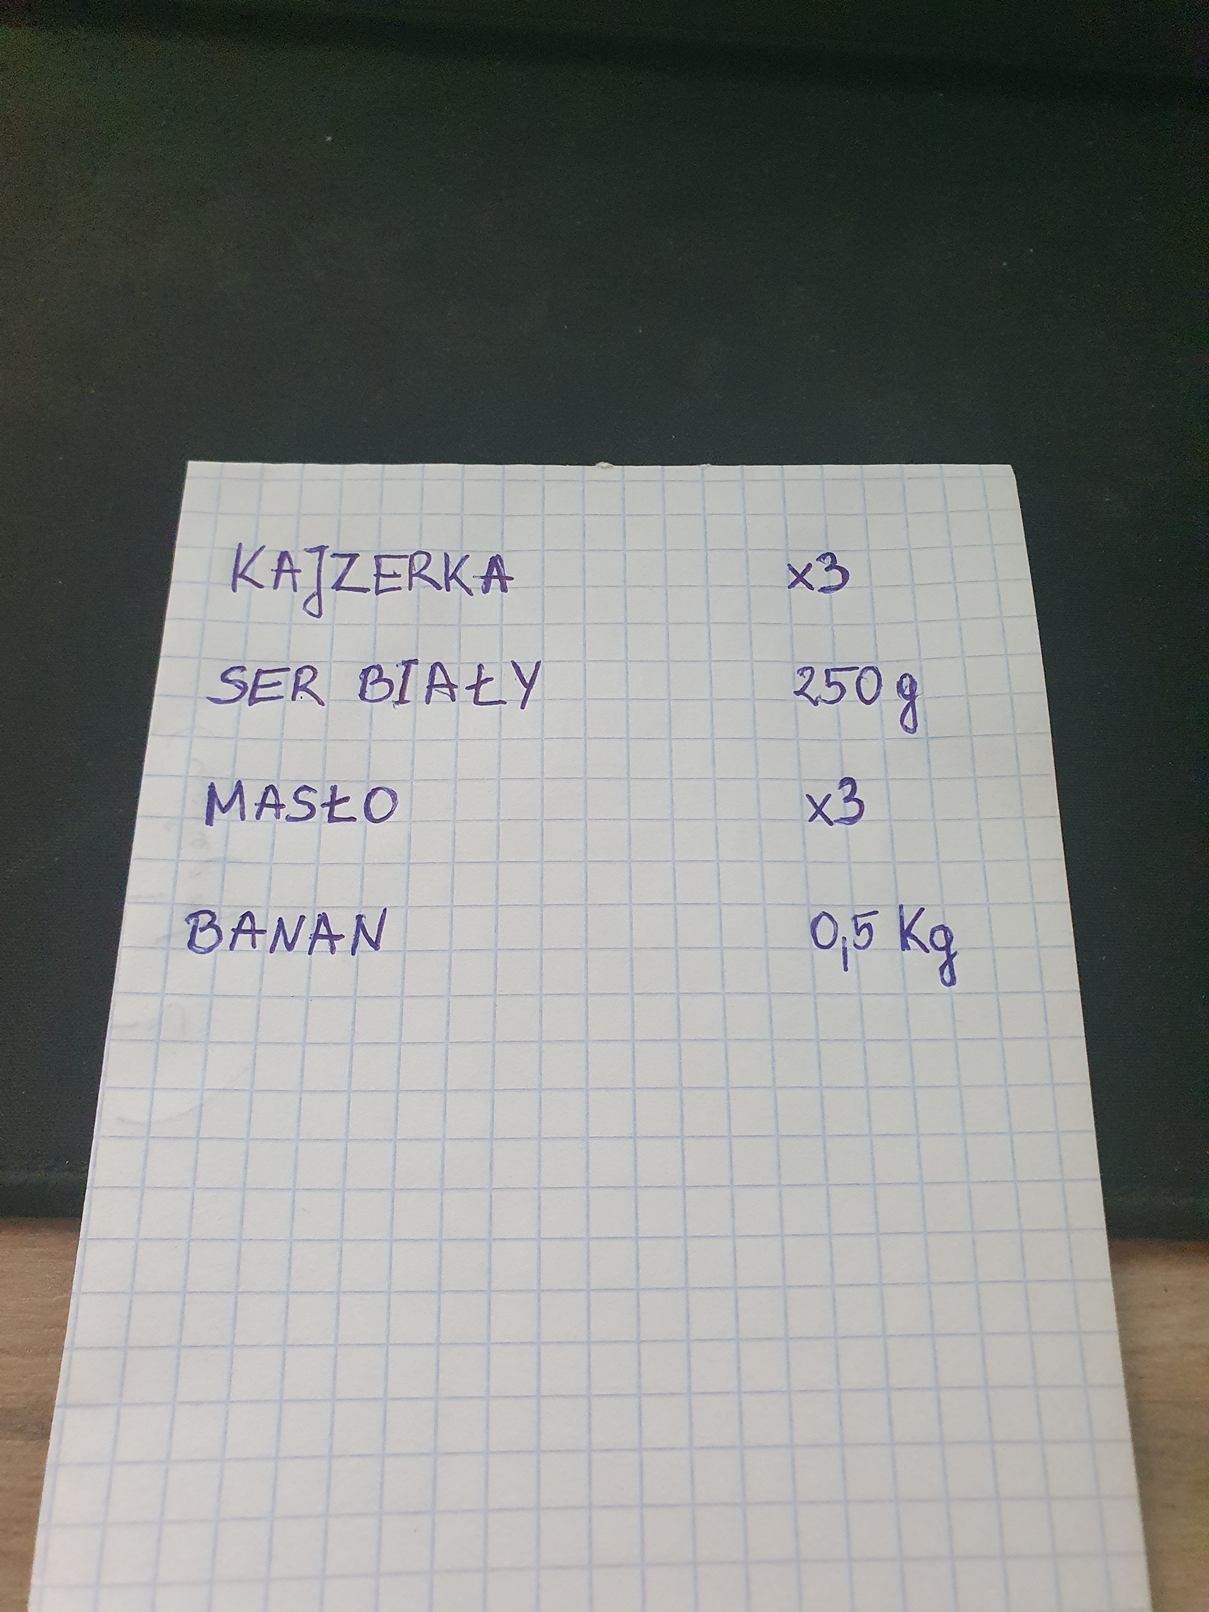 KAJZERKA x3
SER BIAŁY 250 g
MASŁO x3
BANAN 0,5 Kg